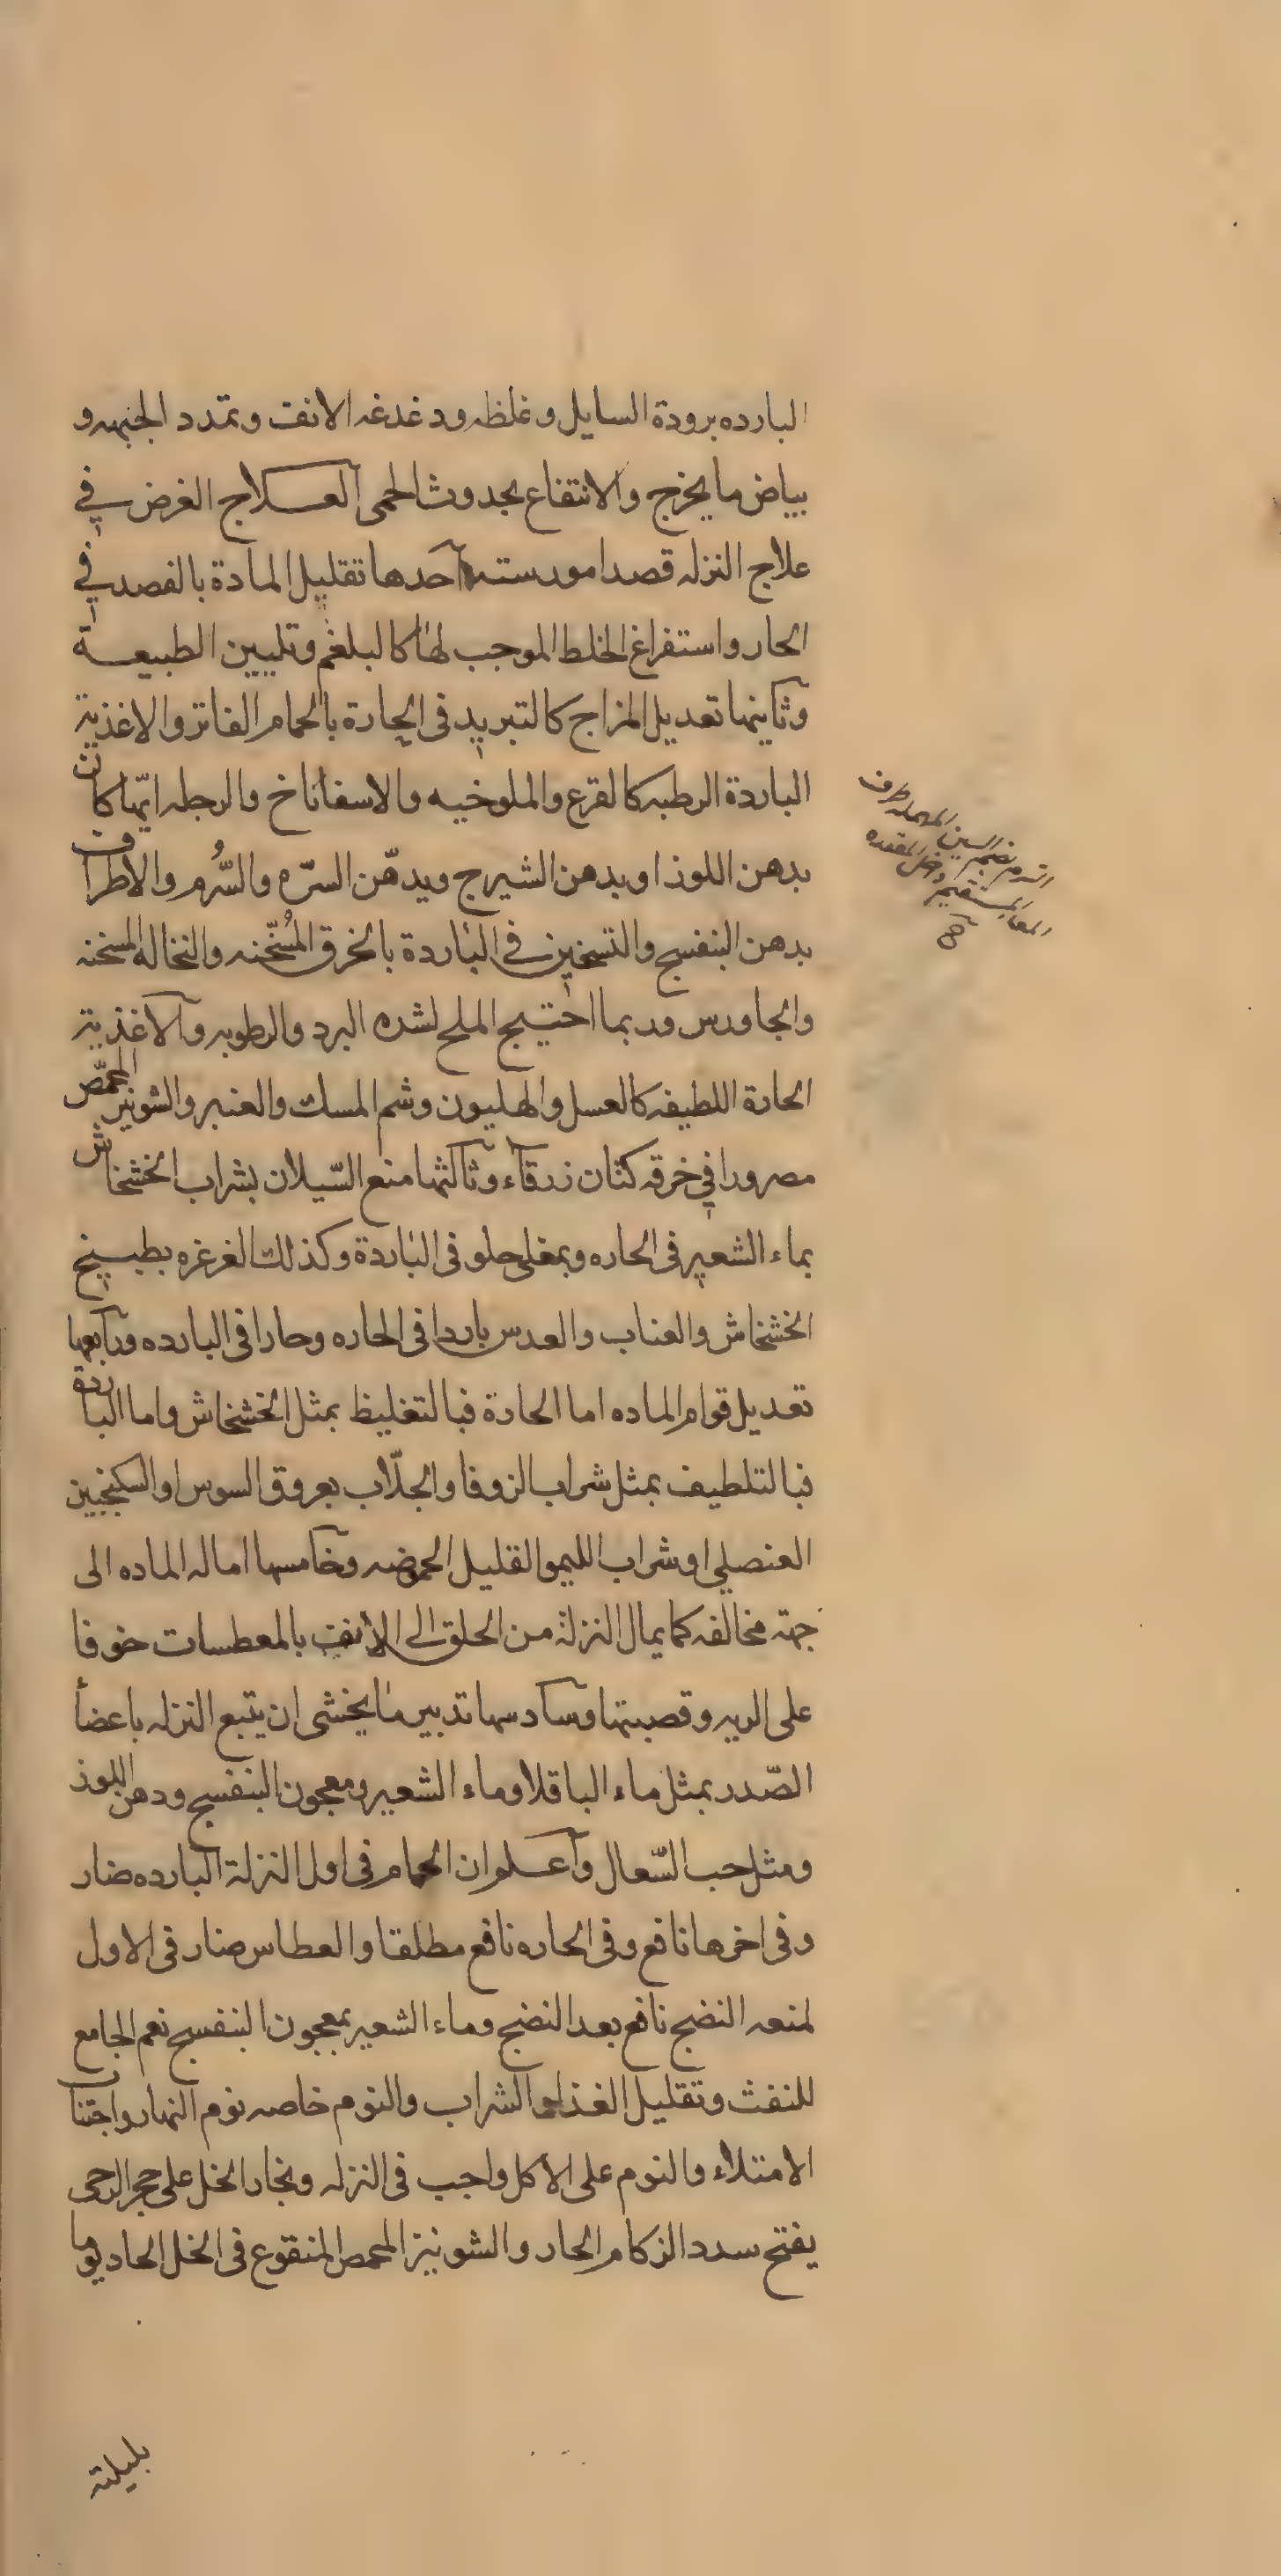 البارده برودة السايل وغلظه ودغدغه الانف وتمدد الجبهه و
بياض ما يخرج والانتفاع بحدوث الحمى العلاج الغرض في
علاج النزله قصد امور سته احدها تقليل المادة بالفصد في
الحار واستفراغ الخلط الموجب لها كالبلغم وتليين الطبيعة
وثانيها تعديل المزاج كالتبريد فى الحارة بالحمام الفاتر والاغذية
الباردة الرطبه كالقرع والملوخيه والاسفاناخ والرجله ايّها كان
بدهن اللوذ او بدهن الشيرج ويدهّن السرّه والسُّرم والاطراف
بدهن البنفسج والتسخين في الباردة بالخرق المُسَخّنه والنخاله المسخنه
والجاورس وربما احتيج الملح لشده البرد والرطوبه والاغذية
الحارة اللطيفه كالعسل والهليون وشم المسك والعنبر والشونيز المحمّص
مصرورا في خرقه كتان زرقاء وثالثها منع السّيلان بشراب الخشخاش
بماء الشعير فى الحاره وبمغلى حلو فى الباردة وكذلك الغرغره بطبيخ
الخشخاش والعناب والعدس باردا فى الحاره وحارا فى البارده ورابعها
تعديل قوام الماده اما الحارة فبالتغليظ بمثل الخشخاش واما الباردة
فبالتلطيف بمثل شراب الزوفا والجلّاب بعروق السوس او السكنجبين
العنصلي او شراب الليمو القليل الحموضه وخامسها اماله الماده الى
جهة مخالفه كما يمال النزلة من الحلق الى الانف بالمعطسات خوفا
على الريه وقصبتها وسادسها تدبير ما يخشى ان يتبع النزله باعضأ
الصّدر بمثل ماء الباقلا وماء الشعير ومعجون البنفسج ودهن اللوذ
ومثل حب السّعال واعلم ان الحمام فى اول النزلة البارده ضار
وفى اخرها نافع وفى الحاره نافع مطلقا والعطاس ضار فى الاول
لمنعه النضج نافع بعد النضج وماء الشعير بمعجون البنفسج نعم الجامع
للنفث وتقليل الغذا والشراب والنوم خاصه نوم النهار واجتناب
الامتلاء والنوم على الاكل واجب فى النزله وبخار الخل على حجر الرحى
يفتح سدد الزكام الحار والشونيز المحمص المنقوع فى الخل الحاد يوما
بليلته
السرم بضم السين المهمله طرف
المعا المستقيم داخل المقعده
صح